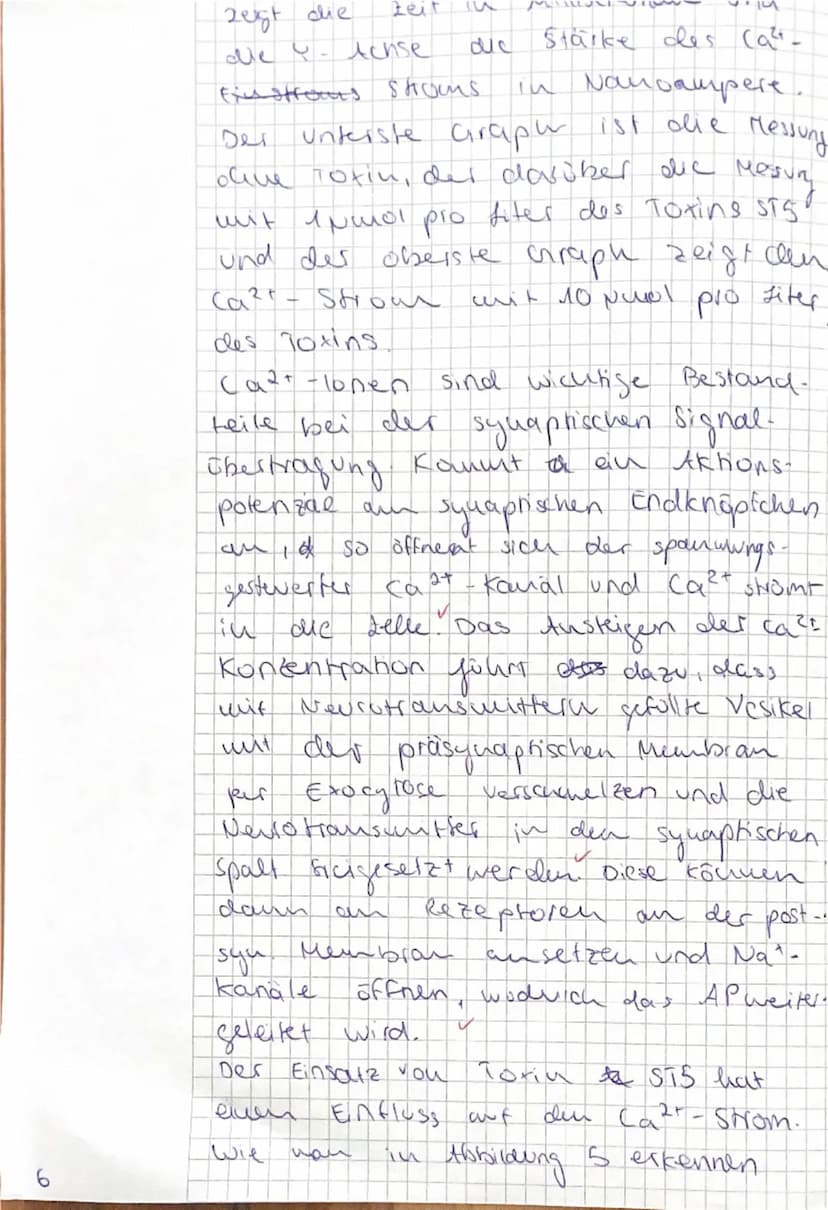 zeigt die Zeit in
die Y-Achse die Stärke des Ca²⁺-
Einstroms Stroms in Nanoampere.
Der unterste Graph ist die Messung
ohne Toxin, der darüber die Mesung
mit 1 µmol pro Liter des Toxins ST5
und der oberste Graph zeigt den
Ca²⁺-Strom mit 10 µmol pro Liter
des Toxins.
Ca²⁺-Ionen sind wichtige Bestand-
teile bei der synaptischen Signal-
übertragung. Kommt ein Aktions-
potenzial am synaptischen Endknöpfchen
an, so öffnet sich der spannungs-
gesteuerter Ca²⁺-Kanal und Ca²⁺ strömt
in die Zelle. Das Ansteigen der Ca²⁺
Konzentration führt dazu, dass
mit Neurotransmittern gefüllte Vesikel
mit der präsynaptischen Membran
per Exocytose verschmelzen und die
Neurotransmitter in den synaptischen
Spalt freigesetzt werden. Diese können
dann an Rezeptoren an der post-
syn. Membran ansetzen und Na⁺-
Kanäle öffnen, wodurch das AP weiter-
geleitet wird.
Der Einsatz von Toxin ST5 hat
einen Einfluss auf den Ca²⁺-Strom.
Wie man in Abbildung 5 erkennen
6